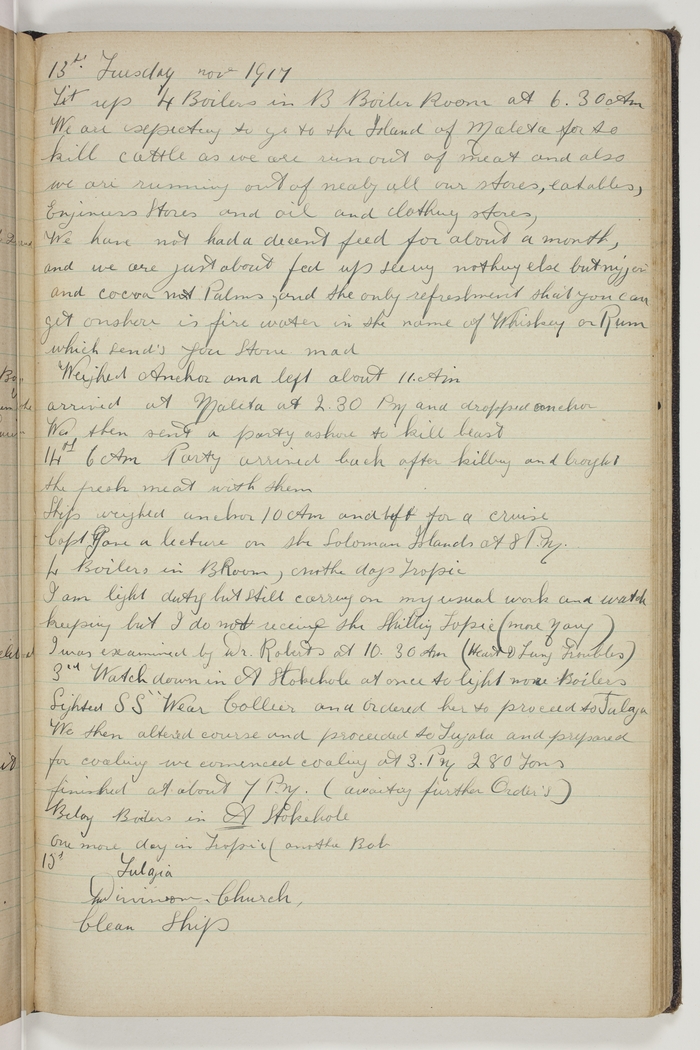 13th. Tuesday nov 1917
Lit up 4 Boilers in B Boiler Room at 6.30 Am
We are expecting to go to the Island of Maleta for to
kill cattle as we are run out of meat and also
we are running out of nealy all our stores, eatables,
Engineers Stores and oil and clothing stores,
We have not had a decent feed for about a month,
and we are just about fed up seeing nothing else but
and cocoa nut Palms, and the only refreshment that you can
get onshore is fire water in the name of Whiskey or Rum
which send's you Stone mad
Weighed Anchor and left about 11. Am
arrived at Maleta at 2.30 Pm and dropped anchor
We then sent a party ashore to kill beast
14th 6 Am Party arrived back after killing and broght
the fresh meat with them
Ship weighed anchor 10 Am and left for a cruise
Capt Gave a lecture on the Soloman Islands at 8 Pm.
4 Boilers in B Room, anothe days Tropic
I am light duty but still carring on my usual work and watch
keeping but I do not receive the Shilling Topic (more yang)
I was examined by Dr. Roberts at 10.30 Am (Heart & Lung Troubles)
3rd Watch down in A Stokehole at once to light more Boilers
Sighted SS "Wear Collier and ordered her to proceed to Tulaga
We then altered course and proceeded to and prepared
for coaling we comenced coaling at 3. Pm 280 Tons
finished at about 7 Pm. (awaiting further Order's)
Boilers in A Stokehole
one more day in Tropic (anothe Bob
15t Tulgia
Division. Church,
Clean Ship